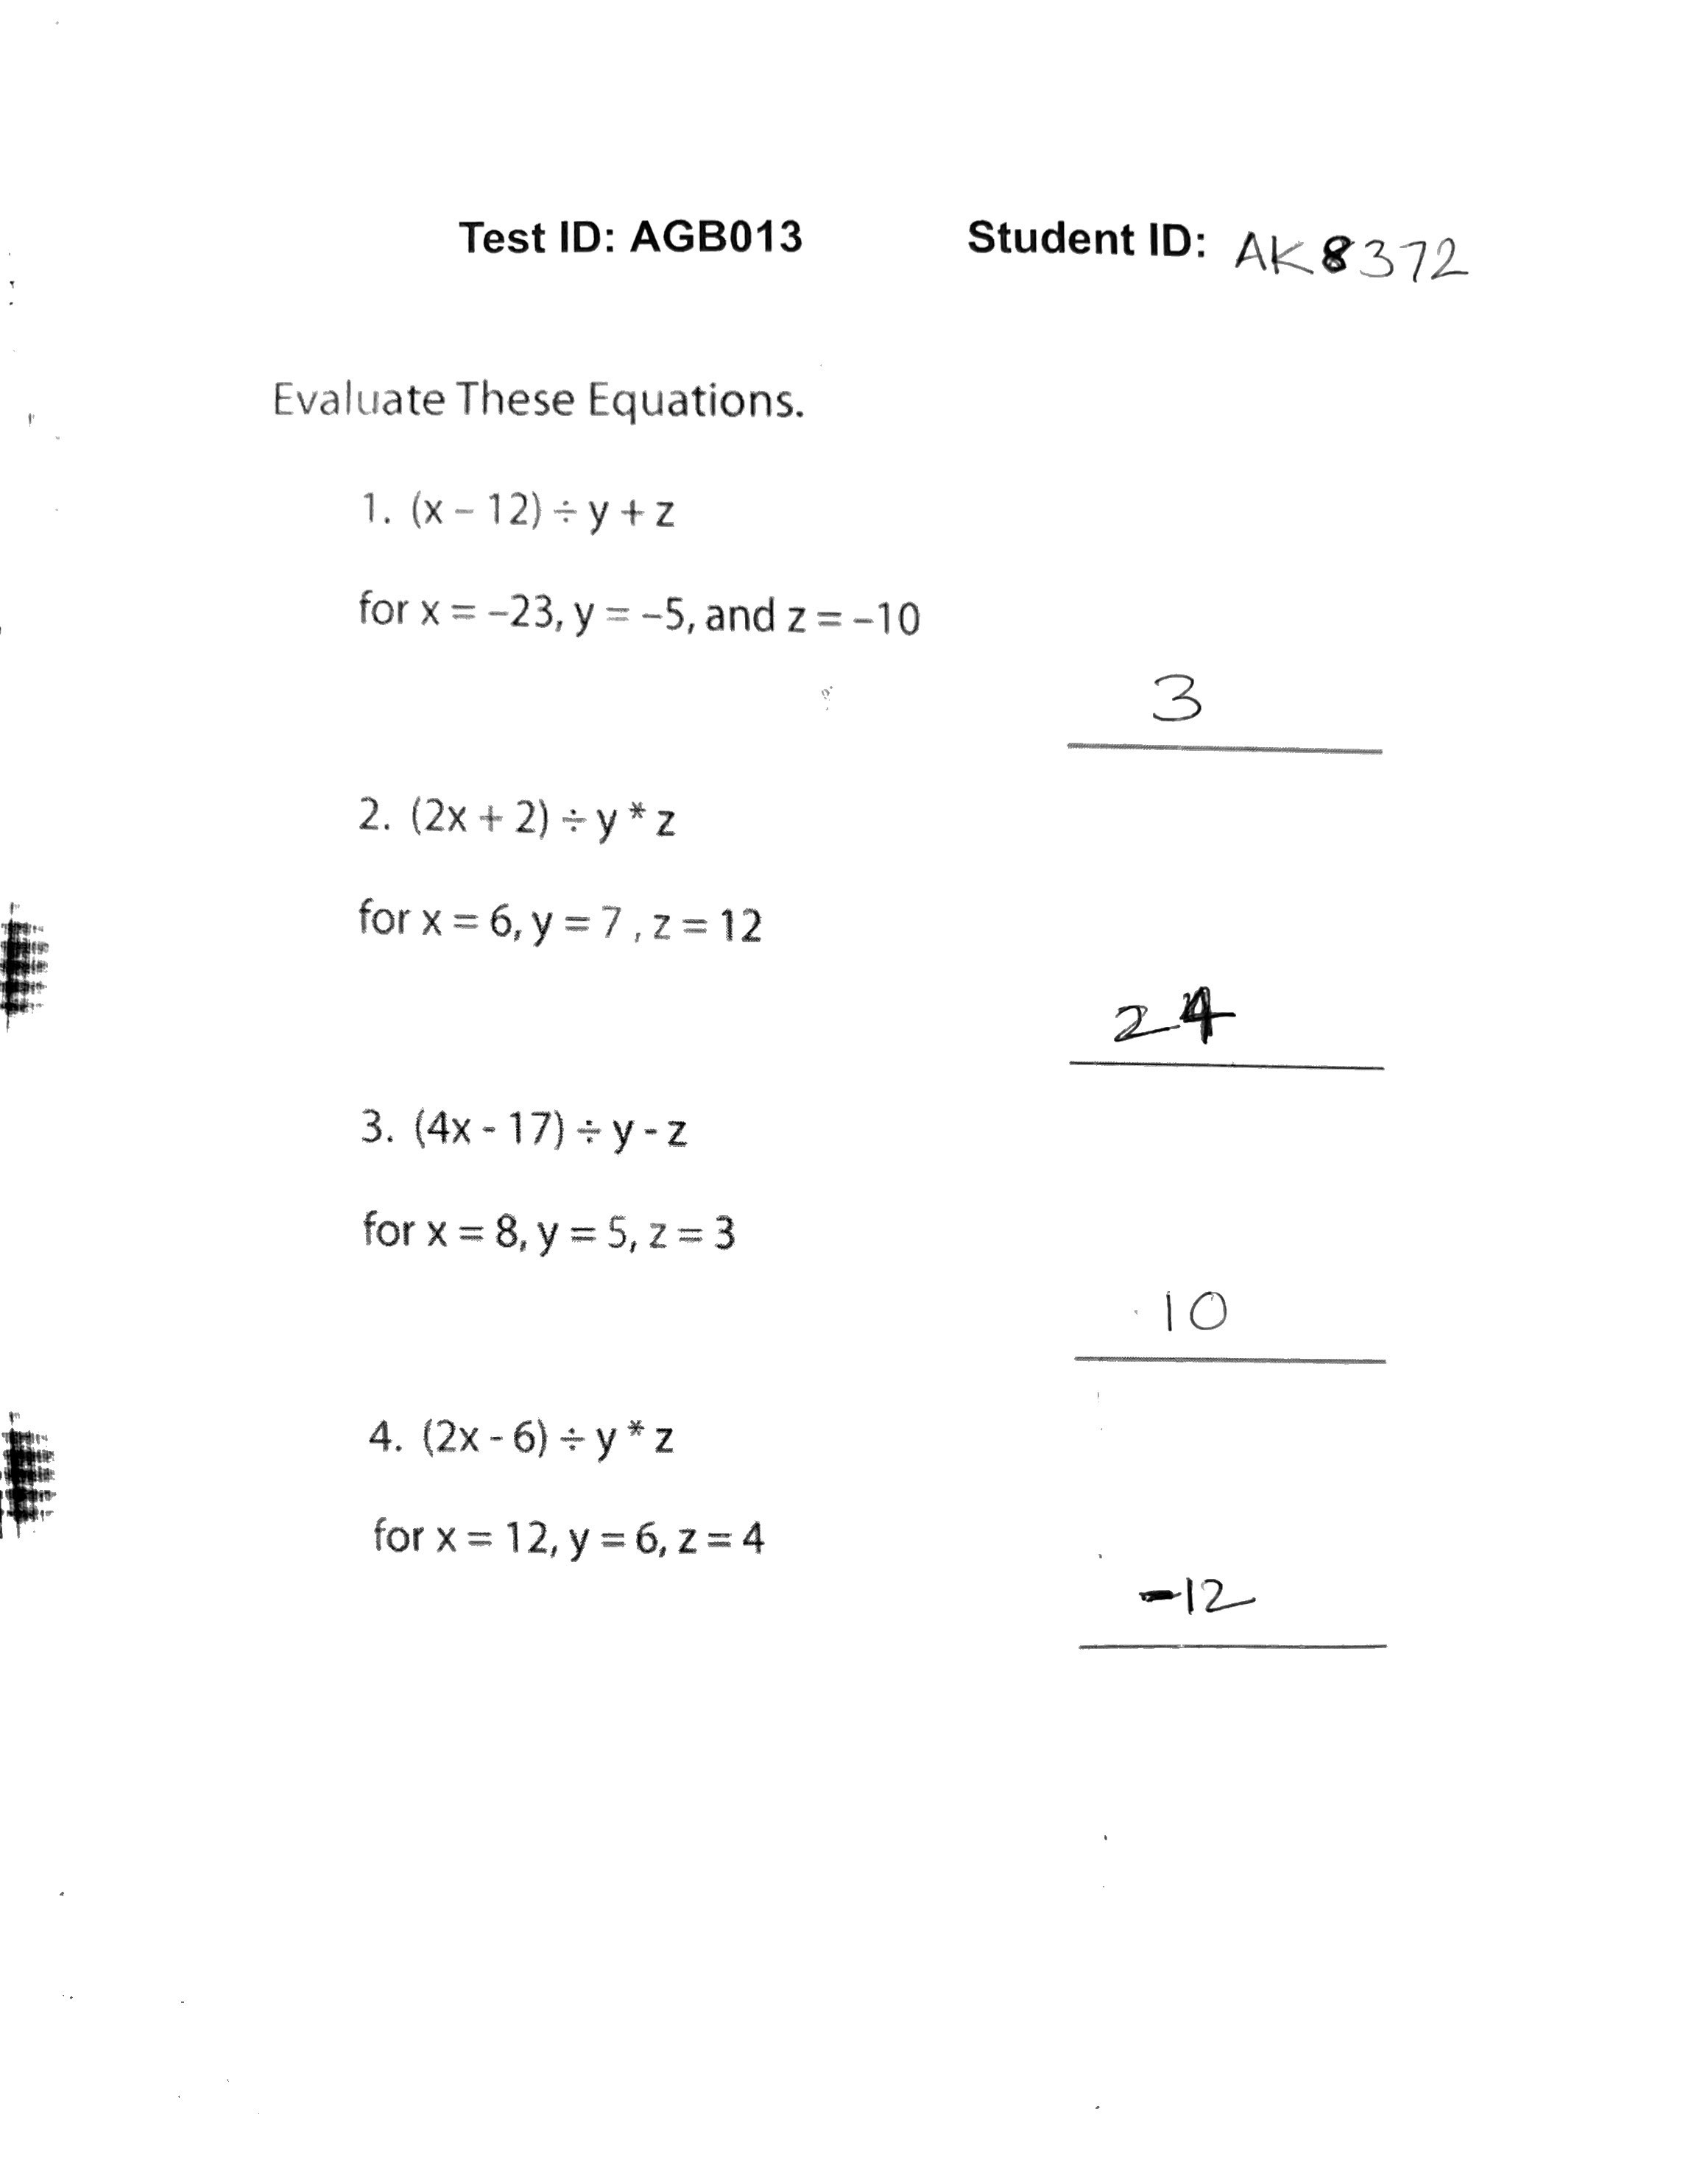 Test ID: AGB013 Student ID: AK8372
Evaluate These Equations.
1. (x – 12) ÷ y + z
for x = –23, y = –5, and z = –10
3
2. (2x + 2) ÷ y * z
for x = 6, y = 7 , z = 12
24
3. (4x - 17) ÷ y - z
for x = 8, y = 5, z = 3
10
4. (2x - 6) ÷ y * z
for x = 12, y = 6, z = 4
-12